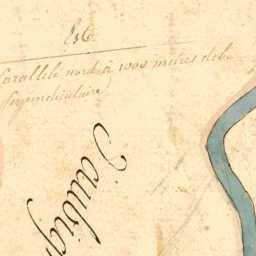 Est.
Parallele nord à 1000 mètres de la
perpendiculaire
Daubig